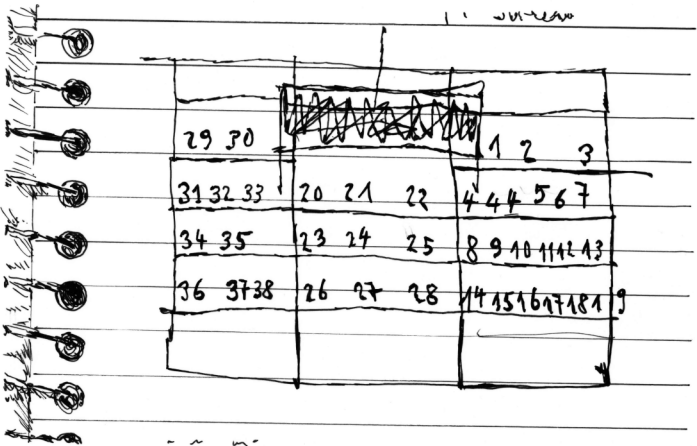 29 30 1 2 3
31 32 33 20 21 22 4 4 4 5 6 7
34 35 23 24 25 8 9 10 11 12 13
36 37 38 26 27 28 14 15 16 17 18 19